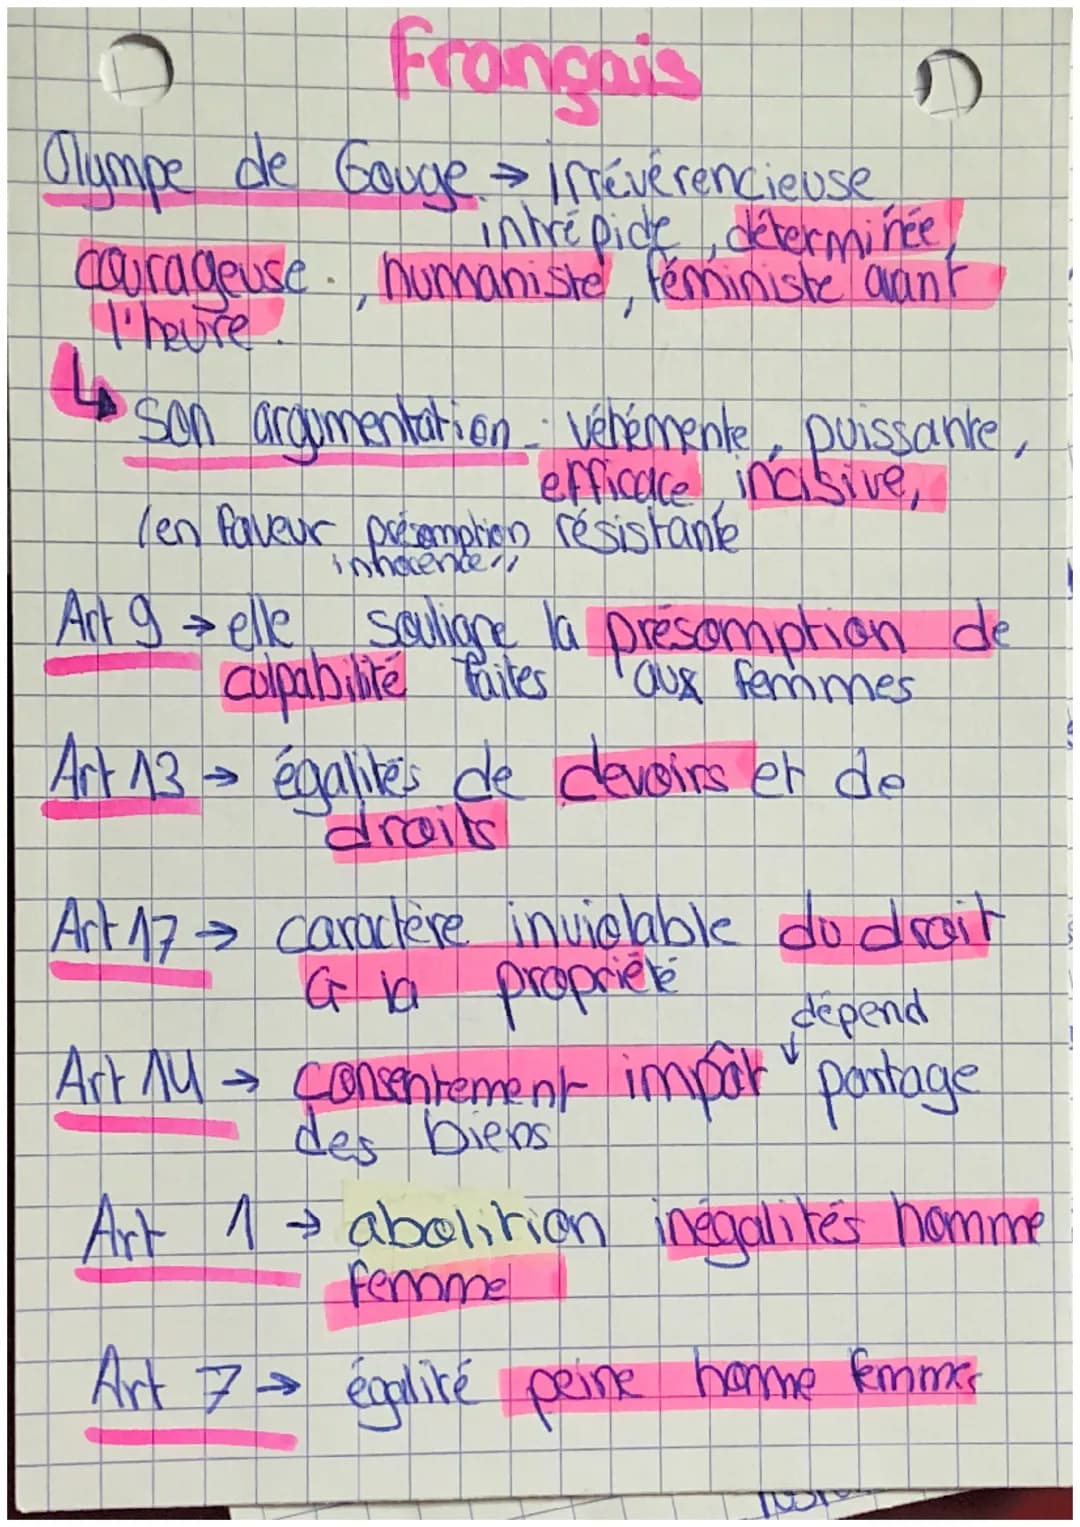 Français
Olympe de Gouge → irrévérencieuse
intrépide, déterminée,
courageuse., humaniste, féministe avant
l'heure.
↳ son argumentation : véhémente, puissante,
efficace, incisive,
(en faveur présomption résistante
inhocence,,
Art 9 → elle souligne la présomption de
culpabilité faites aux femmes
Art 13 → égalités de devoirs et de
droits
Art 17 → caractère inviolable du droit
à la propriété
dépend
Art 14 → consentement impôt ↓ partage
des biens
Art 1 → abolition inégalités homme
femme
Art 7 → égalité peine homme femmes